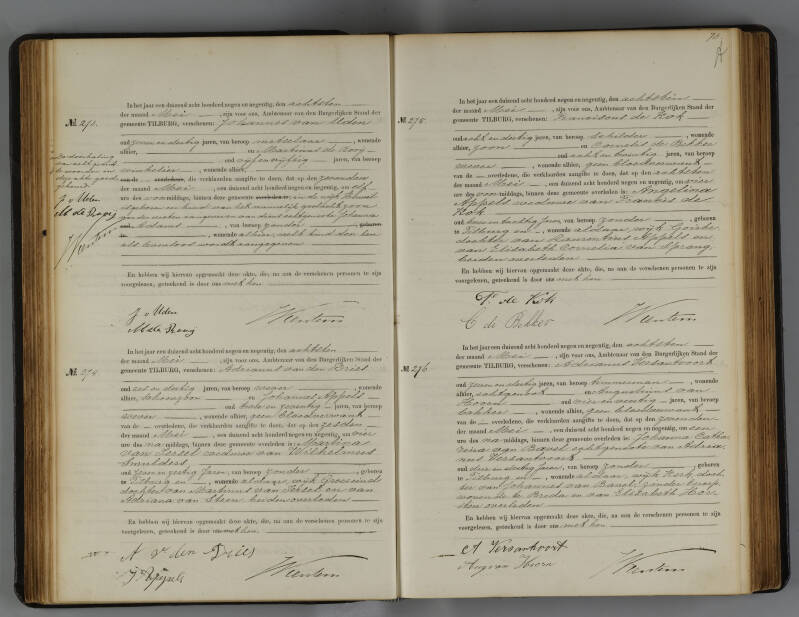 In het jaar een duizend acht honderd negen en negentig, den achtsten
der maand Mei, zijn voor ons, Ambtenaar van den Burgerlijken Stand der
№ 273. gemeente TILBURG, verschenen: Johannes van Uden
oud zeven en dertig jaren, van beroep metselaar, wonende
alhier, en Martinus de Rooy
oud vijfenvijftig jaren, van beroep
winkelier, wonende alhier,
de verklaarden aangifte te doen, dat op den zevenden
der maand Mei, een duizend acht honderd negen en negentig, om elf
ure des voormiddags, binnen deze gemeente in de wijk
geboren een kind van het mannelijk geslacht zoon
Johanna
Adams, van beroep zonder
wonende alhier, welk kind
als levenloos wordt aangegeven
En hebben wij hiervan opgemaakt deze akte, die, na aan de verschenen personen te zijn
voorgelezen, geteekend is door ons met hen
J v Uden
M de Rooy
J v Uden
M de Rooij
In het jaar een duizend acht honderd negen en negentig, den achtsten
der maand Mei, zijn voor ons, Ambtenaar van den Burgerlijken Stand der
№ 274. gemeente TILBURG, verschenen: Adrianus van den Dries
oud zes en dertig jaren, van beroep wever, wonende
alhier, schoonzoon en Johannes Appels
oud twee en zeventig jaren, van beroep
wever, wonende alhier, geen bloedverwant
van de overledene, die verklaarden aangifte te doen, dat op den zesden
der maand Mei, een duizend acht honderd negen en negentig, om vier
ure des namiddags, binnen deze gemeente is overleden: Martina
van Iersel weduwe van Wilhelmus
Smulders
oud zeven en zestig jaren, van beroep zonder, geboren
te Tilburg en wonende aldaar, wijk
dochter van Martinus van Iersel en van
Adriana van Steen beiden overleden
En hebben wij hiervan opgemaakt deze akte, die, na aan de verschenen personen te zijn
voorgelezen, geteekend is door ons met hen.
A v den Dries
J Appels
In het jaar een duizend acht honderd negen en negentig, den achtsten
der maand Mei, zijn voor ons, Ambtenaar van den Burgerlijken Stand der
№ 275. gemeente TILBURG, verschenen: Franciscus de Kok
oud acht en dertig jaren, van beroep schilder, wonende
alhier, zoon en Cornelis de Bekker
oud acht en twintig jaren, van beroep
wever, wonende alhier, geen bloedverwant
van de overledene, die verklaarden aangifte te doen, dat op den achtsten
der maand Mei, een duizend acht honderd negen en negentig, om vier
ure des voormiddags, binnen deze gemeente is overleden: Angelina
Appels weduwe van Francis de
Kok
jaren, van beroep zonder, geboren
te Tilburg en wonende aldaar, wijk Goirke
dochter van Laurentius Appels en
van Elisabeth Cornelia van Sprang
beiden overleden
En hebben wij hiervan opgemaakt deze akte, die, na aan de verschenen personen te zijn
voorgelezen, geteekend is door ons met hen
F. de Kok
C de Bekker
In het jaar een duizend acht honderd negen en negentig, den achtsten
der maand Mei, zijn voor ons, Ambtenaar van den Burgerlijken Stand der
№ 276. gemeente TILBURG, verschenen: Adrianus Versantvoort
oud zeven en dertig jaren, van beroep timmerman, wonende
alhier, echtgenoot en Augustinus van
Hoorn oud vier en veertig jaren, van beroep
bakker, wonende alhier, geen bloedverwant
van de overledene, die verklaarden aangifte te doen, dat op den zevenden
der maand Mei, een duizend acht honderd negen en negentig, om een
ure des namiddags, binnen deze gemeente is overleden: Johanna Catha
rina van Bavel echtgenoote van Adria
nus Versantvoort
oud drie en dertig jaren, van beroep zonder, geboren
te Tilburg en wonende aldaar, wijk Kerk, doch
ter van Johannes van Bavel, zonder beroep,
wonende te Breda en van Elizabeth
overleden
En hebben wij hiervan opgemaakt deze akte, die, na aan de verschenen personen te zijn
voorgelezen, geteekend is door ons met hen
A Versantvoort
Aug van Hoorn